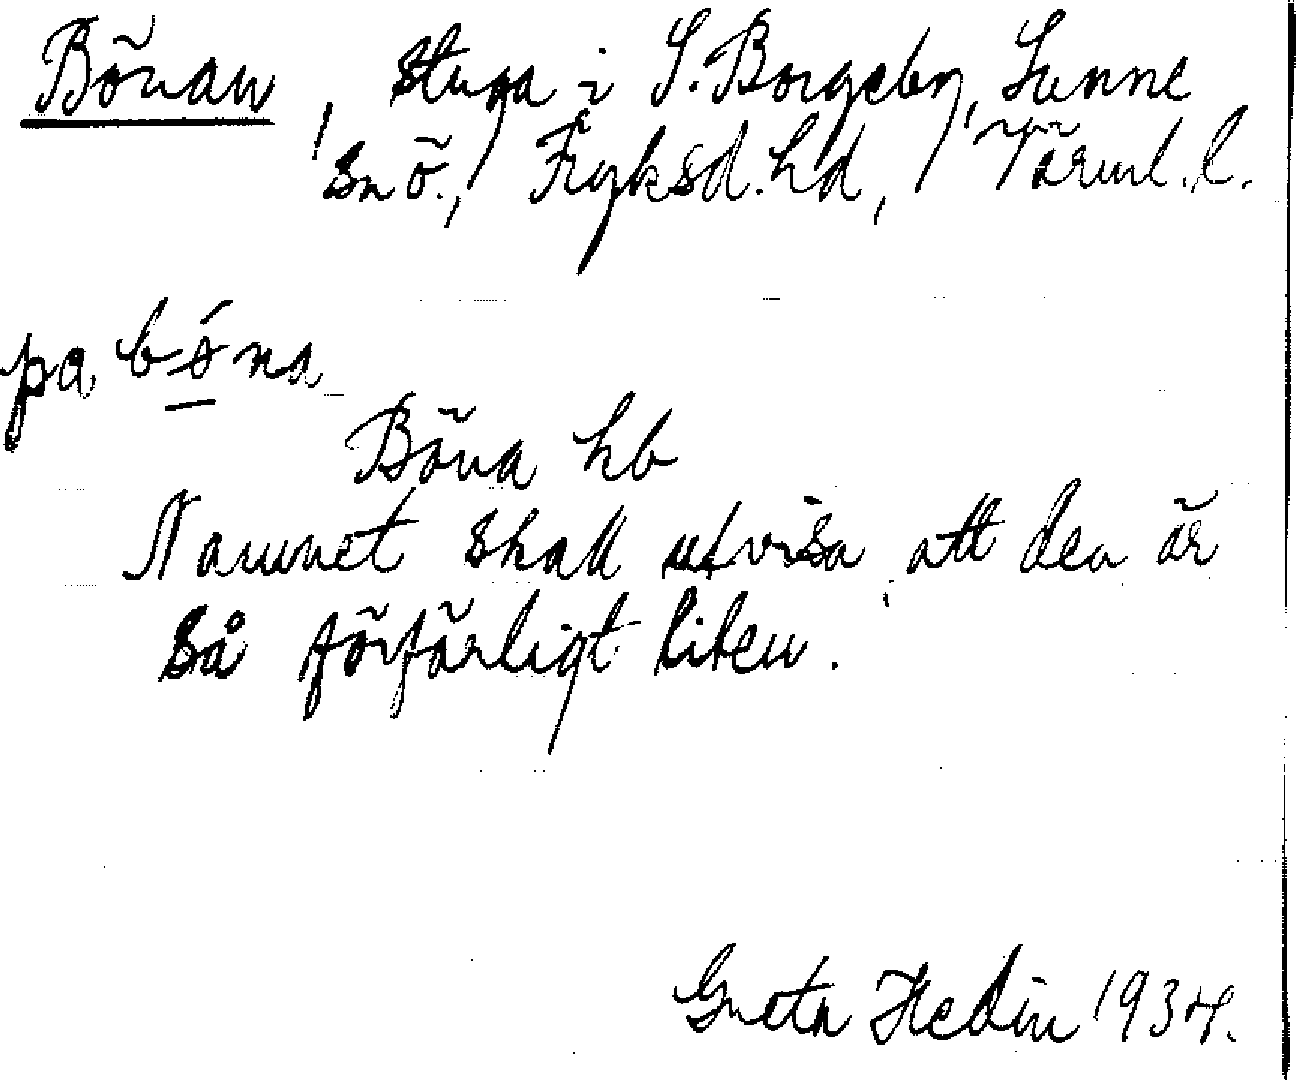 Bönan, stuga i S. Borgeby, Sunne
sn ö., Fryksd. hd, Värml. l.
pa bǿna
Böna hb
Namnet skall utvisa att den är
så förfärligt liten.
Greta Hedin 1934.